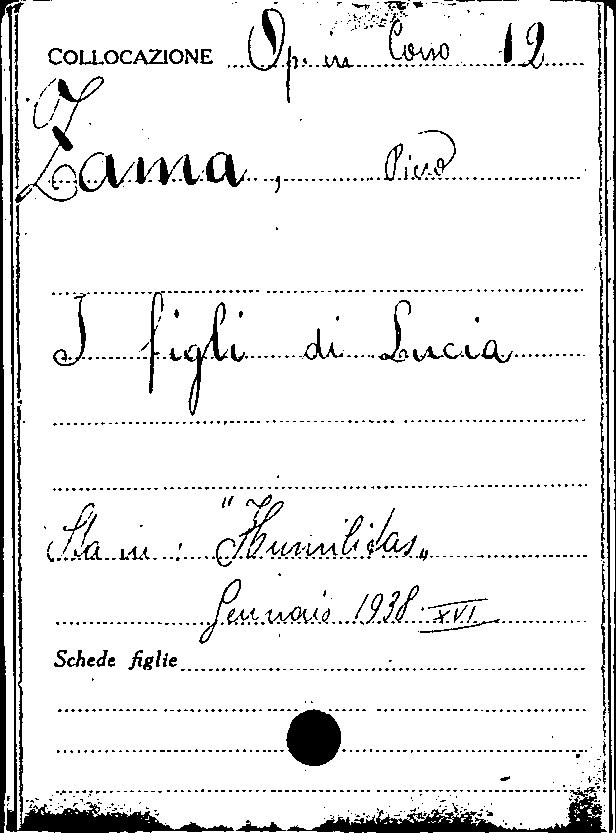 COLLOCAZIONE Op. in Corso 12
Zama, Piero
I figli di Lucia
Sta in: "Humilitas„
Gennaio 1938 XVI
Schede figlie